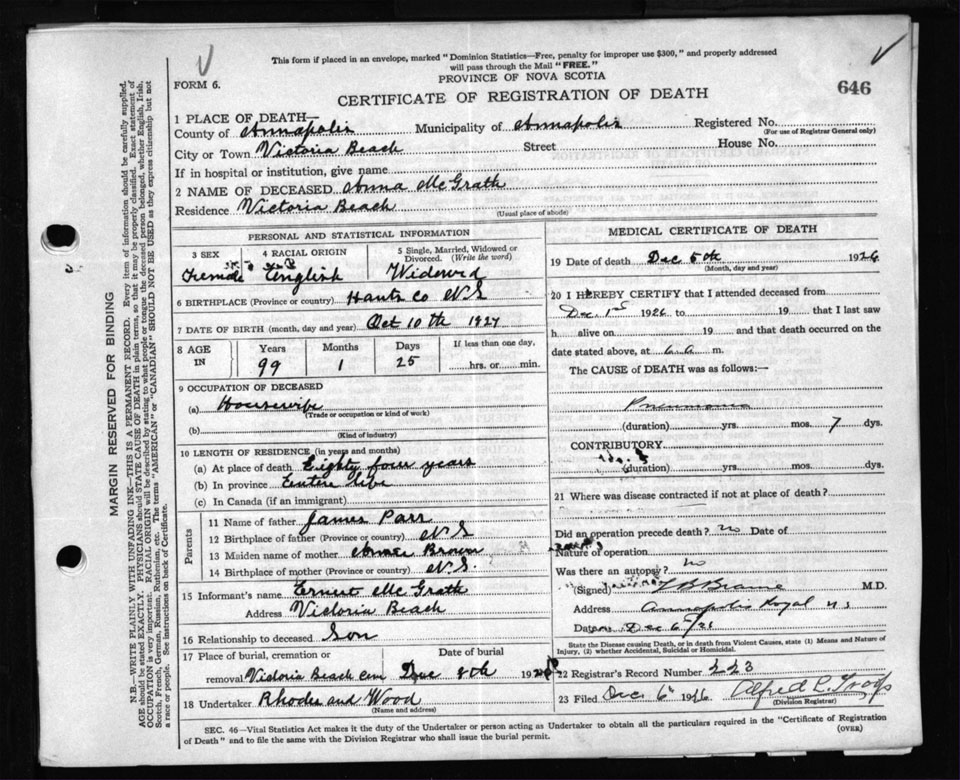 This form if placed in an envelope, marked "Dominion Statistics—Free, penalty for improper use $300," and properly addressed
will pass through the Mail "FREE."
FORM 6.
PROVINCE OF NOVA SCOTIA
646
CERTIFICATE OF REGISTRATION OF DEATH
1 PLACE OF DEATH—
County of Annapolis Municipality of Annapolis Registered No.
(For use of Registrar General only)
City or Town Victoria Beach Street House No.
If in hospital or institution, give name
2 NAME OF DECEASED Anna McGrath
Residence Victoria Beach
(Usual place of abode)
PERSONAL AND STATISTICAL INFORMATION
3 SEX 4 RACIAL ORIGIN 5 Single, Married, Widowed or Divorced. (Write the word)
Female English Widowed
6 BIRTHPLACE (Province or country) Hants Co N.S
7 DATE OF BIRTH (month, day and year) Oct 10th 1827
8 AGE IN Years Months Days If less than one day,
99 1 25 hrs. or min.
9 OCCUPATION OF DECEASED
(a) Housewife
(Trade or occupation or kind of work)
(b)
(Kind of industry)
10 LENGTH OF RESIDENCE (in years and months)
(a) At place of death Eighty four years
(b) In province Entire life
(c) In Canada (if an immigrant)
Parents
11 Name of father James Parr
12 Birthplace of father (Province or country) N S
13 Maiden name of mother Brown
14 Birthplace of mother (Province or country) N.S.
15 Informant's name Ernest McGrath
Address Victoria Beach
16 Relationship to deceased Son
17 Place of burial, cremation or removal Date of burial
Victoria Beach Cem Dec 8th 192
18 Undertaker Rhodes and Wood
(Name and address)
MEDICAL CERTIFICATE OF DEATH
19 Date of death Dec 5th 1926
(Month, day and year)
20 I HEREBY CERTIFY that I attended deceased from
Dec 1st 1926 to 19 that I last saw
h alive on 19 and that death occurred on
date stated above, at 6 a m.
The CAUSE of DEATH was as follows:—
Pneumonia
(duration) yrs. mos. 7 dys.
CONTRIBUTORY
(duration) yrs. mos. dys.
21 Where was disease contracted if not at place of death?
Did an operation precede death? no Date of
Nature of operation
Was there an autopsy? no
(Signed) M.D.
Address Annapolis Royal N S
Date Dec 6th/26
State the Disease causing Death, or in death from Violent Causes, state (1) Means and Nature of
Injury, (2) whether Accidental, Suicidal or Homicidal.
22 Registrar's Record Number 223
23 Filed Dec. 6th 1926 Alfred L.
(Division Registrar)
SEC. 46—Vital Statistics Act makes it the duty of the Undertaker or person acting as Undertaker to obtain all the particulars required in the "Certificate of Registration
of Death" and to file the same with the Division Registrar who shall issue the burial permit.
(OVER)
MARGIN RESERVED FOR BINDING
N.B.—WRITE PLAINLY WITH UNFADING INK—THIS IS A PERMANENT RECORD. Every item of information should be carefully supplied.
AGE should be stated EXACTLY. PHYSICIANS should STATE CAUSE OF DEATH in plain terms, so that it may be properly classified. Exact statement of
OCCUPATION is very important. RACIAL ORIGIN will be described by stating to what people or tongue the deceased person belonged, whether English, Irish,
Scotch, French, German, Russian, Ruthenian, etc. The terms "AMERICAN" or "CANADIAN" SHOULD NOT BE USED as they express citizenship but not
a race or people. See instructions on back of Certificate.